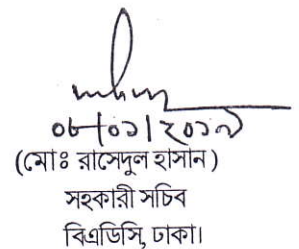 ০৮/০১/২০১৯
(মোঃ রাসেদুল হাসান)
সহকারী সচিব
বিএডিসি, ঢাকা।